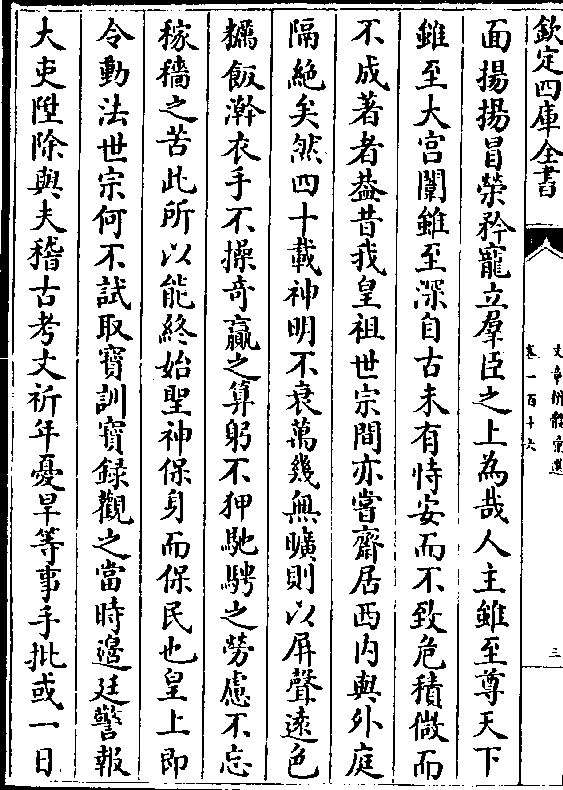 欽定四庫全書
文章辨體彚選
卷一百十六
三
面揚揚冒榮矜寵立羣臣之上為哉人主雖至尊天下
雖至大宫闈雖至深自古未有恃安而不致危積微而
不成著者葢昔我皇祖世宗間亦嘗齋居西内與外庭
隔絶矣然四十載神明不衰萬幾無曠則以屏聲逺色
糲飯澣衣手不操奇贏之算躬不狎馳騁之勞慮不忘
稼穡之苦此所以能終始聖神保身而保民也皇上即
令動法世宗何不試取寶訓寶録觀之當時邉廷警報
大吏陞除與夫稽古考文祈年憂旱等事手批或一日